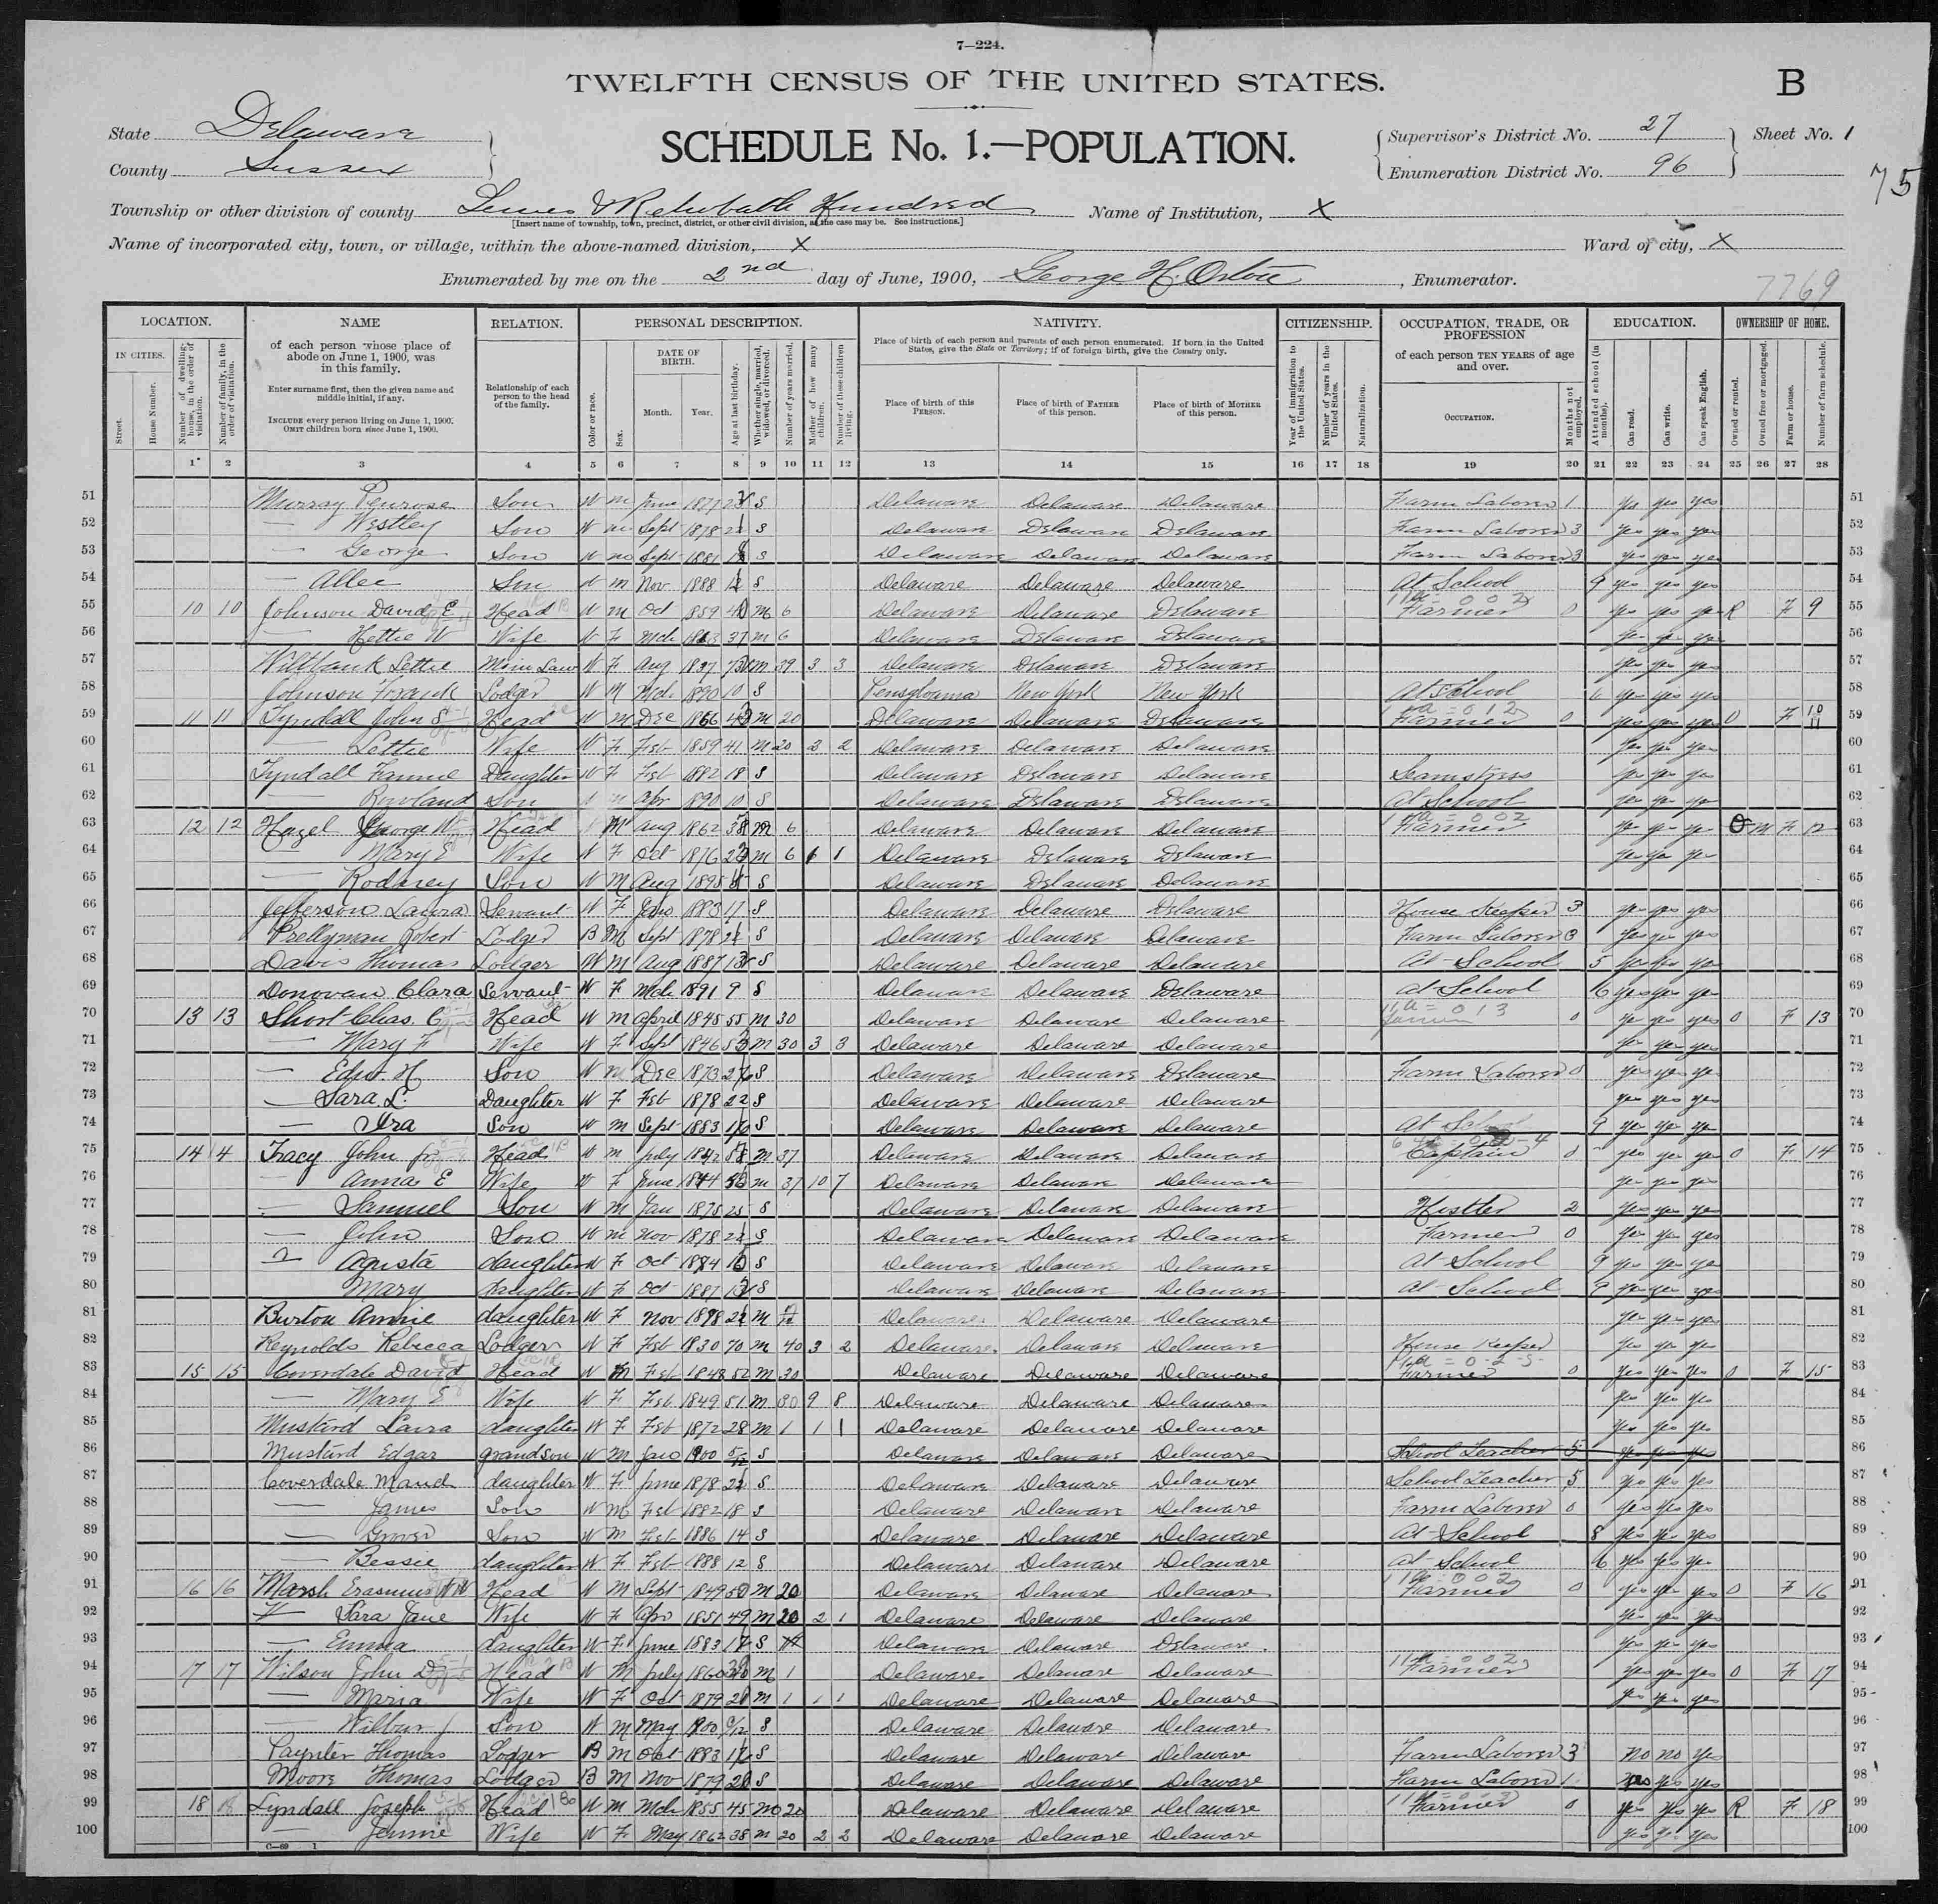 7—224.
TWELFTH CENSUS OF THE UNITED STATES.
B
State Delaware
County Sussex
SCHEDULE No. 1.—POPULATION.
Supervisor's District No. 27
Enumeration District No. 96
Sheet No. 1
75
Township or other division of county Lewes & Rehoboth Hundred
[Insert name of township, town, precinct, district, or other civil division, as the case may be. See instructions.]
Name of Institution, X
Name of incorporated city, town, or village, within the above-named division, X
Ward of city, X
Enumerated by me on the 2nd day of June, 1900, George H. , Enumerator.
7769
LOCATION. NAME RELATION. PERSONAL DESCRIPTION. NATIVITY. CITIZENSHIP. OCCUPATION, TRADE, OR PROFESSION EDUCATION. OWNERSHIP OF HOME.
IN CITIES.
Street.
House Number.
Number of dwelling-house, in the order of visitation.
Number of family, in the order of visitation.
of each person whose place of abode on June 1, 1900, was in this family.
Enter surname first, then the given name and middle initial, if any.
INCLUDE every person living on June 1, 1900. OMIT children born since June 1, 1900.
Relationship of each person to the head of the family.
Color or race.
Sex.
DATE OF BIRTH.
Month. Year.
Age at last birthday.
Whether single, married, widowed, or divorced.
Number of years married.
Mother of how many children.
Number of these children living.
Place of birth of each person and parents of each person enumerated. If born in the United States, give the State or Territory; if of foreign birth, give the Country only.
Place of birth of this PERSON.
Place of birth of FATHER of this person.
Place of birth of MOTHER of this person.
Year of immigration to the United States.
Number of years in the United States.
Naturalization.
of each person TEN YEARS of age and over.
OCCUPATION.
Months not employed.
Attended school (in months).
Can read.
Can write.
Can speak English.
Owned or rented.
Owned free or mortgaged.
Farm or house.
Number of farm schedule.
1 2 3 4 5 6 7 8 9 10 11 12 13 14 15 16 17 18 19 20 21 22 23 24 25 26 27 28
51 Murray Penrose Son W m June 1877 S Delaware Delaware Delaware Farm Laborer 1 yes yes yes 51
52 — Westley Son W m Sept 1878 21 S Delaware Delaware Delaware Farm Laborer 3 yes yes yes 52
53 — George Son W m Sept 1881 18 S Delaware Delaware Delaware Farm Laborer 3 yes yes yes 53
54 — Allee Son W m Nov 1888 S Delaware Delaware Delaware At School 9 yes yes yes 54
55 10 10 Johnson David E Head W m Oct 1859 40 m 6 Delaware Delaware Delaware Farmer 0 yes yes yes R F 9 55
56 — Hettie W Wife W F Mch 1863 37 m 6 Delaware Delaware Delaware yes yes yes 56
57 Wiltbank Lettie M in Law W F Aug m 39 3 3 Delaware Delaware Delaware yes yes yes 57
58 Johnson Frank Lodger W M Mch 1890 10 S Pensylvania New York New York At School 6 yes yes yes 58
59 11 11 Tyndall John S Head W m Dec 1856 43 m 20 Delaware Delaware Delaware Farmer 0 yes yes yes O F 10 11 59
60 — Lettie Wife W F Feb 1859 41 m 20 3 2 Delaware Delaware Delaware yes yes yes 60
61 Tyndall Fannie Daughter W F Feb 1882 18 S Delaware Delaware Delaware Seamstress yes yes yes 61
62 — Rowland Son W m Apr 1890 10 S Delaware Delaware Delaware At School yes yes yes 62
63 12 12 Hazel George W Head M Aug 1862 m 6 Delaware Delaware Delaware Farmer yes yes yes O M F 12 63
64 — Mary E Wife W F Oct 1876 23 m 6 1 1 Delaware Delaware Delaware yes yes yes 64
65 — Rodney Son W M Aug 1895 S Delaware Delaware Delaware 65
66 Jefferson Laura Servant W F Jan 1883 17 S Delaware Delaware Delaware House Keeper 3 yes yes yes 66
67 Prettyman Robert Lodger B M Sept 1878 21 S Delaware Delaware Delaware Farm Laborer 3 yes yes yes 67
68 Davis Thomas Lodger W m Aug 1887 S Delaware Delaware Delaware At School 5 yes yes yes 68
69 Donovan Clara Servant W F Mch 1891 9 S Delaware Delaware Delaware At School 6 yes yes yes 69
70 13 13 Short Chas. C Head W m April 1845 55 m 30 Delaware Delaware Delaware Farmer 0 yes yes yes O F 13 70
71 — Mary F Wife W F Sept 1846 53 m 30 3 3 Delaware Delaware Delaware yes yes yes 71
72 — Edw. H Son W m Dec 1873 26 S Delaware Delaware Delaware Farm Laborer 0 yes yes yes 72
73 — Sara L. Daughter W F Feb 1878 22 S Delaware Delaware Delaware yes yes yes 73
74 — Ira Son W m Sept 1883 16 S Delaware Delaware Delaware At School 9 yes yes yes 74
75 14 14 Tracy John Jr Head W m July 1842 m 37 Delaware Delaware Delaware Captain 0 yes yes yes O F 14 75
76 — Anna E Wife W F June 1844 m 37 10 7 Delaware Delaware Delaware yes yes yes 76
77 — Samuel Son W m Jan 1875 25 S Delaware Delaware Delaware Hostler 2 yes yes yes 77
78 — John Son W m Nov 1878 21 S Delaware Delaware Delaware Farmer 0 yes yes yes 78
79 — Agusta daughter W F Oct 1884 15 S Delaware Delaware Delaware At School 9 yes yes yes 79
80 Mary daughter W F Oct S Delaware Delaware Delaware At School 9 yes yes yes 80
81 Burton Annie daughter W F Nov 1878 21 m Delaware Delaware Delaware yes yes yes 81
82 Reynolds Rebecca Lodger W F Feb 1830 70 m 40 3 2 Delaware Delaware Delaware House Keeper yes yes yes 82
83 15 15 Coverdale David Head W M Feb 1848 52 m 30 Delaware Delaware Delaware Farmer 0 yes yes yes O F 15 83
84 — Mary E Wife W F Feb 1849 51 m 30 9 8 Delaware Delaware Delaware yes yes yes 84
85 Mustard Laura daughter W F Feb 1872 28 m 1 1 1 Delaware Delaware Delaware yes yes yes 85
86 Mustard Edgar grandson W m Jan 1900 5/12 S Delaware Delaware Delaware School Teacher 5 yes yes yes 86
87 Coverdale Maud daughter W F June 1878 21 S Delaware Delaware Delaware School Teacher 5 yes yes yes 87
88 — James Son W M Feb 1882 18 S Delaware Delaware Delaware Farm Laborer 0 yes yes yes 88
89 — Grover Son W m Feb 1886 14 S Delaware Delaware Delaware At School 8 yes yes yes 89
90 — Bessie daughter W F Feb 1888 12 S Delaware Delaware Delaware At School 6 yes yes yes 90
91 16 16 Marsh Erasmus W Head W M Sept 1849 50 m 20 Delaware Delaware Delaware Farmer 0 yes yes yes O F 16 91
92 — Sara Jane Wife W F Apr 1851 49 m 20 2 1 Delaware Delaware Delaware yes yes yes 92
93 — Emma daughter W F June 1883 S Delaware Delaware Delaware yes yes yes 93
94 17 17 Wilson John D Head W M July 1860 39 m 1 Delaware Delaware Delaware Farmer yes yes yes O F 17 94
95 — Maria Wife W F Oct 1879 20 m 1 1 1 Delaware Delaware Delaware yes yes yes 95
96 — Wilbur J Son W m May 1900 0/12 S Delaware Delaware Delaware 96
97 Paynter Thomas Lodger B m Oct 1883 16 S Delaware Delaware Delaware Farm Laborer 3 no no yes 97
98 Moore Thomas Lodger B M Nov 1879 20 S Delaware Delaware Delaware Farm Laborer 1 yes yes yes 98
99 18 18 Lyndall Joseph Head W m Mch 1855 45 m 20 Delaware Delaware Delaware Farmer 0 yes yes yes R F 18 99
100 — Jennie Wife W F May 1862 38 m 20 2 2 Delaware Delaware Delaware yes yes yes 100
C—69 1